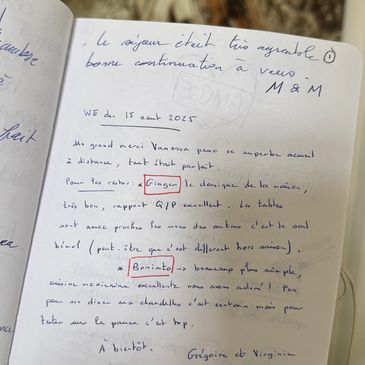 le séjour était très agréable ①
bonne continuation à vous.
M & M
WE du 15 aout 2025
Un grand merci Vanessa pour ce superbe accueil
à distance, tout était parfait.
Pour les restos : * Ginger le classique de la maison,
très bon, rapport Q/P excellent. Les tables
sont assez proches les unes des autres c'est le seul
bémol (peut-être que c'est différent hors saison).
* Boniato → beaucoup plus simple,
cuisine mexicaine excellente nous avons adoré ! Pas
pour un diner aux chandelles c'est certain mais pour
rester sur le pouce c'est top.
À bientôt. Grégoire et Virginie
fait